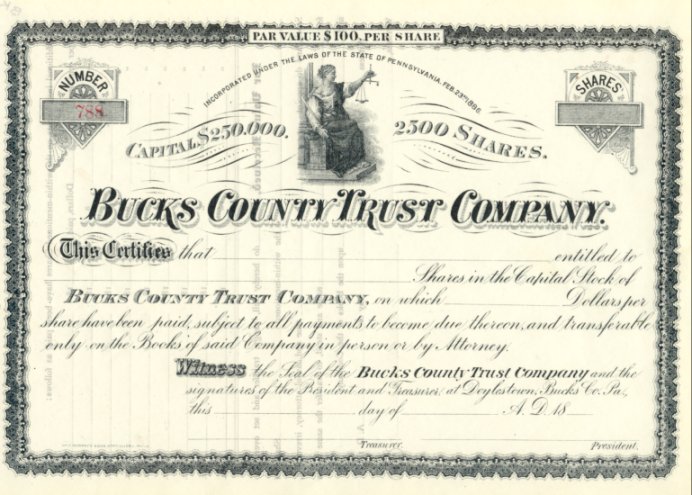 PAR VALUE $100. PER SHARE
INCORPORATED UNDER THE LAWS OF THE STATE OF PENNSYLVANIA, FEB. 23RD 1886.
NUMBER
788
SHARES
CAPITAL $250,000.
2500 SHARES.
BUCKS COUNTY TRUST COMPANY.
This Certifies that entitled to
Shares in the Capital Stock of
BUCKS COUNTY TRUST COMPANY, on which Dollars per
share have been paid, subject to all payments to become due thereon, and transferable
only on the Books of said Company in person or by Attorney.
Witness the Seal of the Bucks County Trust Company and the
signatures of the President and Treasurer, at Doylestown, Bucks Co. Pa.,
this day of A.D. 18
Treasurer. President.